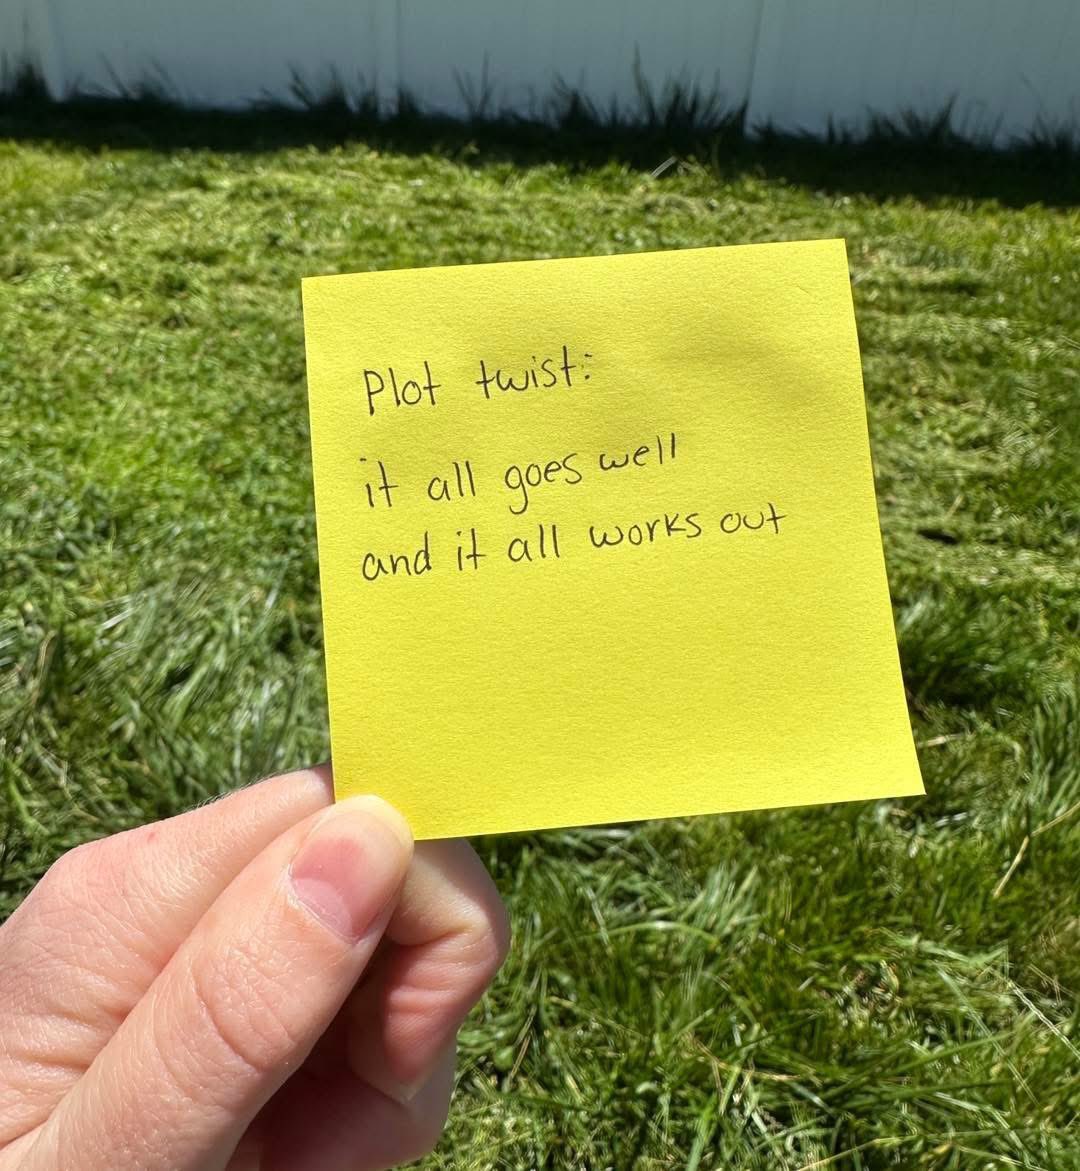 Plot twist:
it all goes well
and it all works out